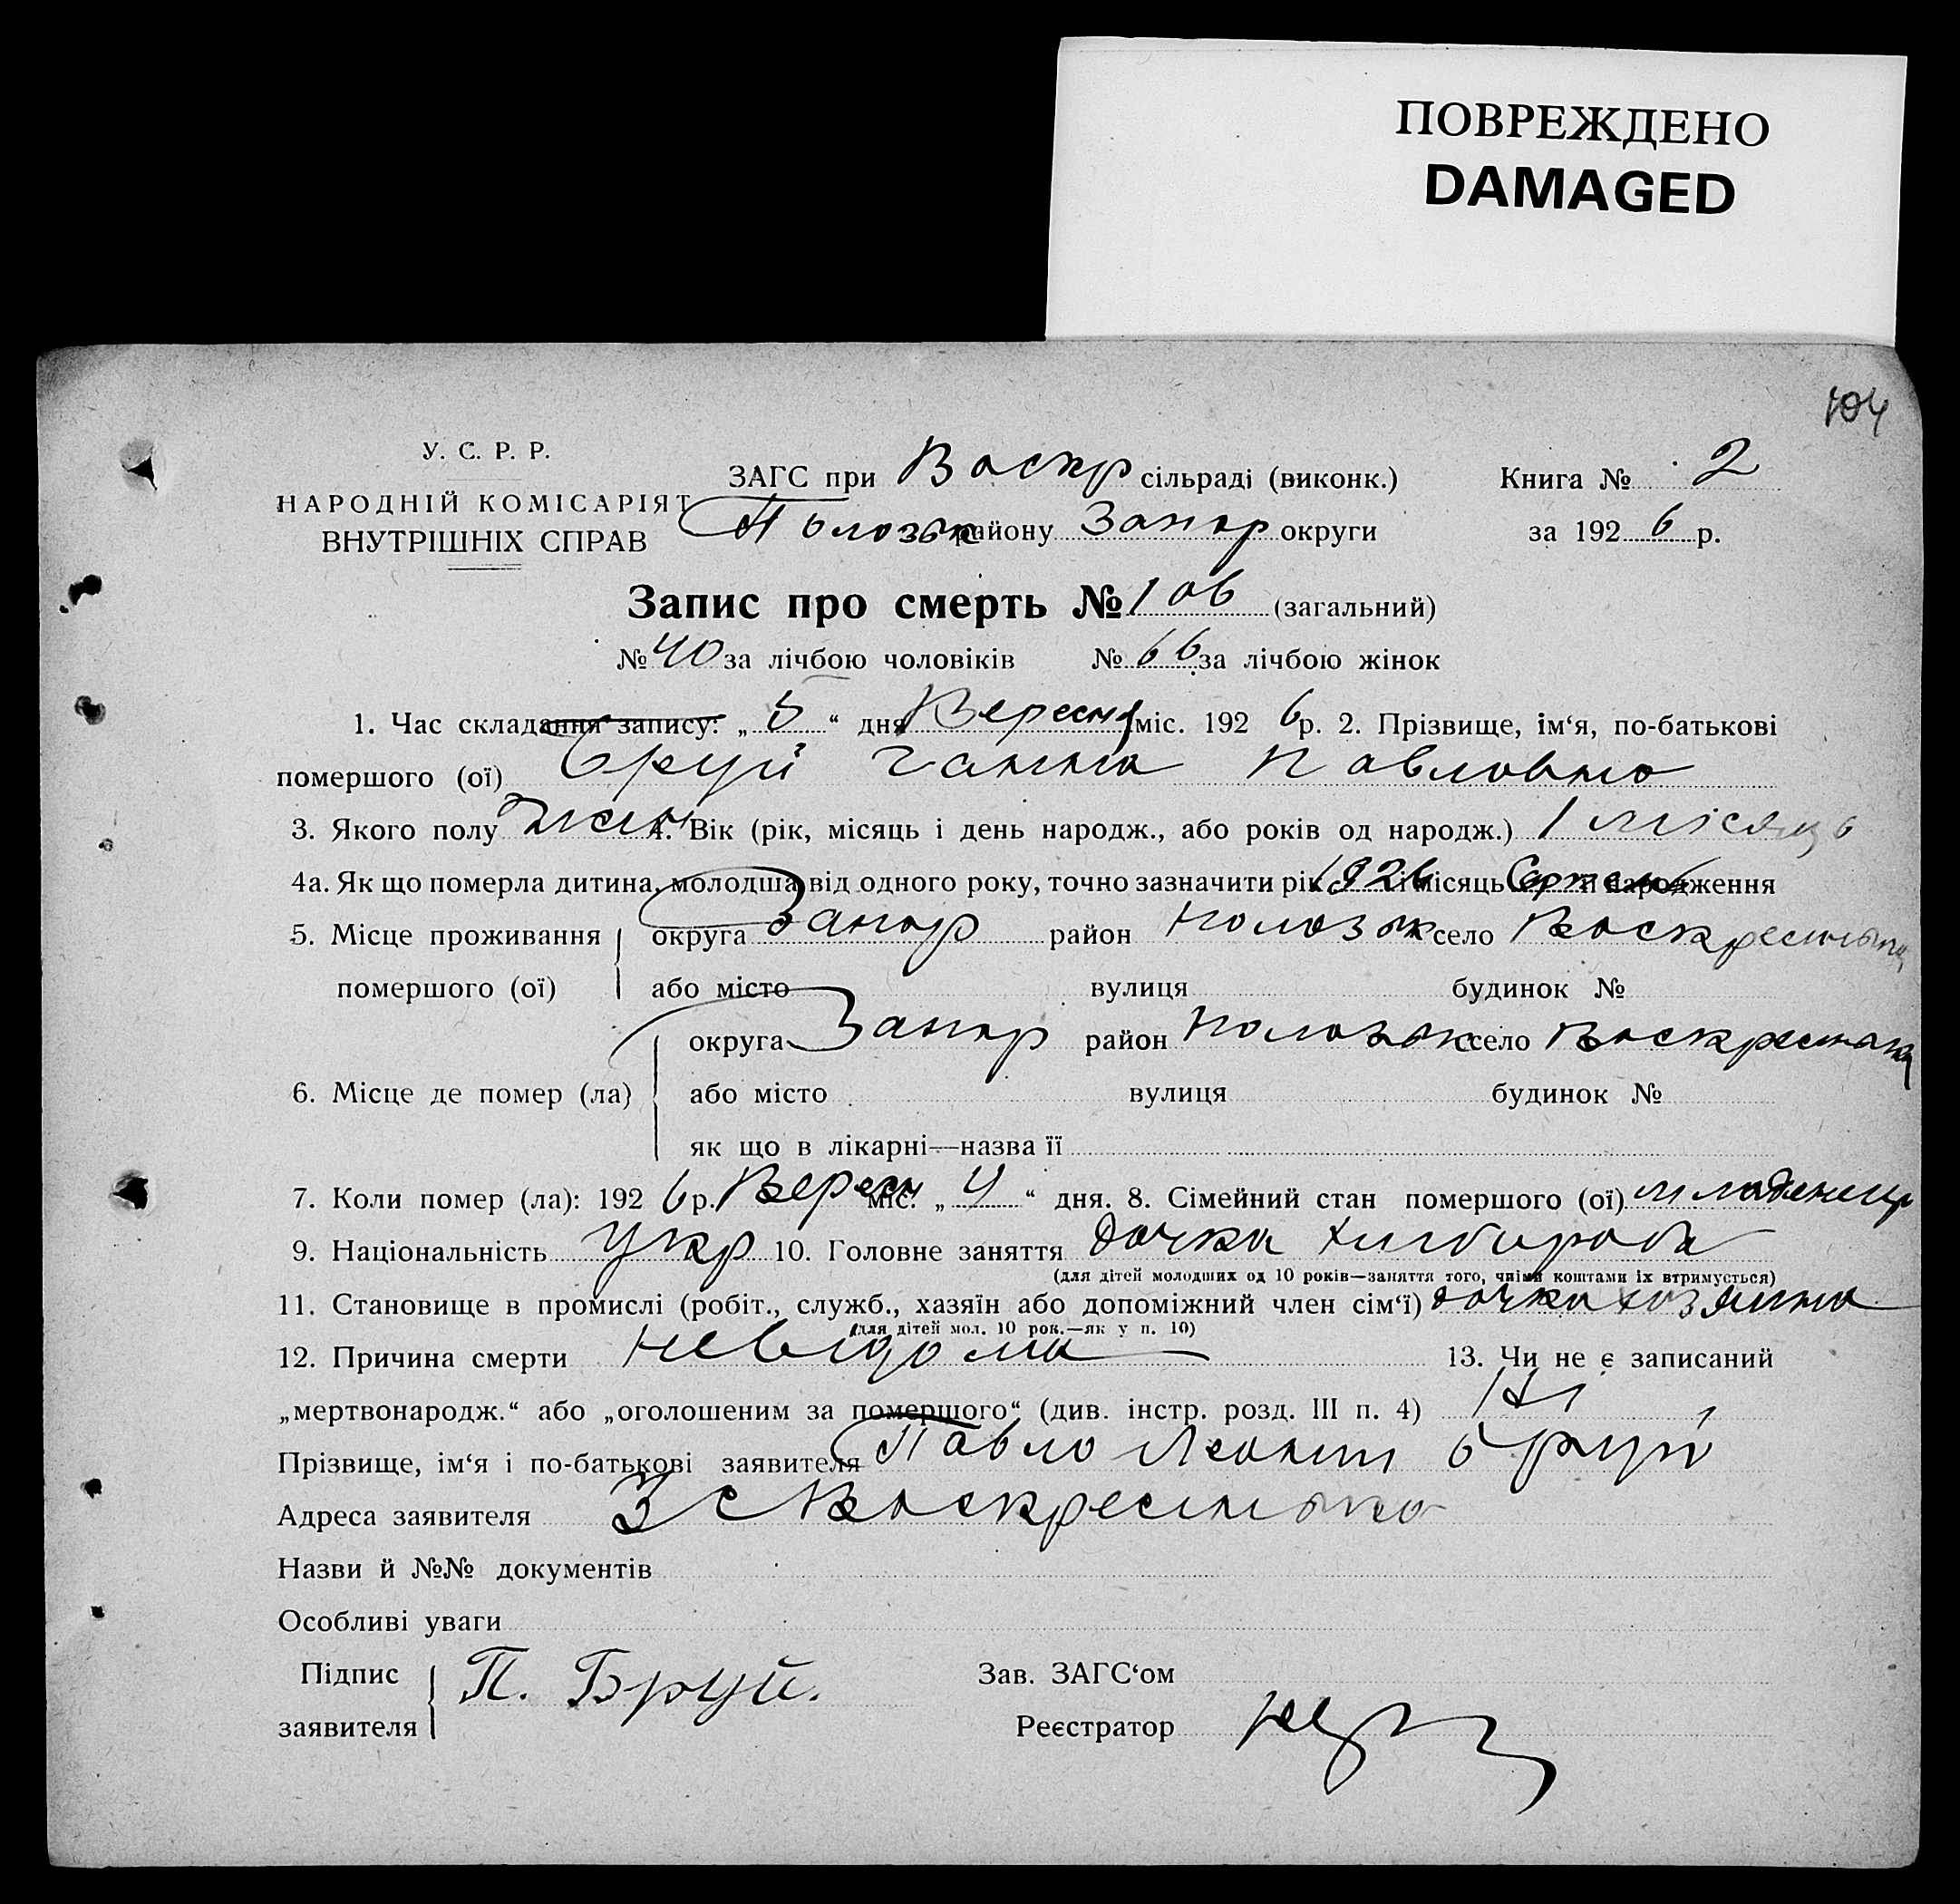 ПОВРЕЖДЕНО
DAMAGED
104
У. С. Р. Р.
НАРОДНІЙ КОМІСАРІЯТ
ВНУТРІШНІХ СПРАВ
ЗАГС при Воскр сільраді (виконк.)
Полозьк району Запор округи
Книга № 2
за 192 6 р.
Запис про смерть № 106 (загальний)
№ 40 за лічбою чоловіків № 66 за лічбою жінок
1. Час складання запису: „ 5 “ дня Вересня міс. 192 6 р. 2. Прізвище, ім‘я, по-батькові
помершого (ої) Бруй Ганна Павловна
3. Якого полу жен 4. Вік (рік, місяць і день народж., або років од народж.) 1 місяць
4а. Як що померла дитина, молодша від одного року, точно зазначити рік 1926 і місяць Серпень її народження
5. Місце проживання округа Запор район Полозьк село Воскресенька
помершого (ої) або місто вулиця будинок №
округа Запор район Полозьк село Воскресенка
6. Місце де помер (ла) або місто вулиця будинок №
як що в лікарні—назва її
7. Коли помер (ла): 192 6 р. Вересн міс. „ 4 “ дня. 8. Сімейний стан помершого (ої) младенець
9. Національність Укр 10. Головне заняття дочка хлибороба
(для дітей молодших од 10 років—заняття того, чиїми коштами їх втримується)
11. Становище в промислі (робіт., служб., хазяїн або допоміжний член сім‘ї) дочка хозяина
(для дітей мол. 10 рок.—як у п. 10)
12. Причина смерти невідома 13. Чи не є записаний
„мертвонародж.“ або „оголошеним за помершого“ (див. інстр. розд. III п. 4) Ні
Прізвище, ім‘я і по-батькові заявителя Павло Леонт Бруй
Адреса заявителя З с Воскресенька
Назви й №№ документів
Особливі уваги
Підпис заявителя П. Бруй.
Зав. ЗАГС‘ом
Реєстратор